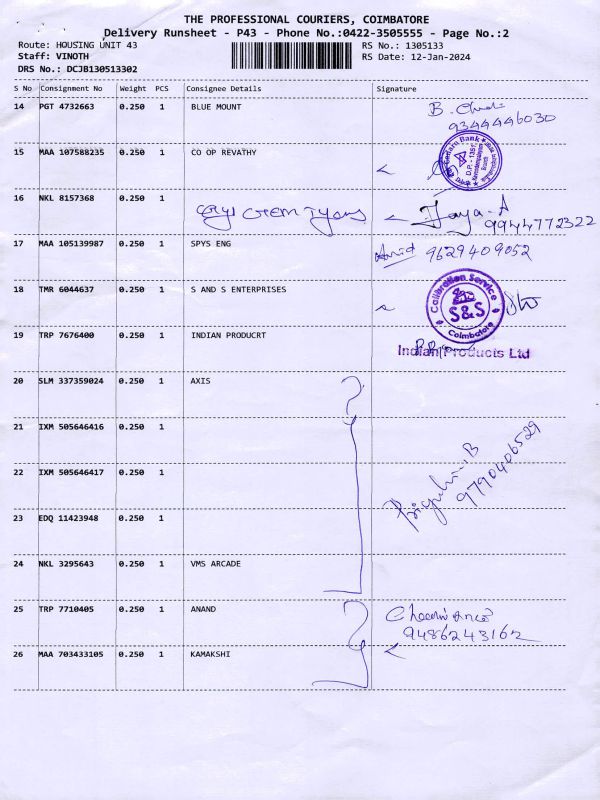 THE PROFESSIONAL COURIERS, COIMBATORE
Delivery Runsheet - P43 - Phone No.:0422-3505555 - Page No.:2
Route: HOUSING UNIT 43 RS No.: 1305133
Staff: VINOTH RS Date: 12-Jan-2024
DRS No.: DCJB130513302
S No Consignment No Weight PCS Consignee Details Signature
14 PGT 4732663 0.250 1 BLUE MOUNT B.
9344446030
15 MAA 107588235 0.250 1 CO OP REVATHY
Bank
D.P.-1351
16 NKL 8157368 0.250 1 Jaya-A
9944772322
17 MAA 105139987 0.250 1 SPYS ENG 9629409052
18 TMR 6044637 0.250 1 S AND S ENTERPRISES
Calibration Service
S&S
Coimbatore
19 TRP 7676400 0.250 1 INDIAN PRODUCRT
Indian Products Ltd
20 SLM 337359024 0.250 1 AXIS
21 IXM 505646416 0.250 1
22 IXM 505646417 0.250 1
9790406529
23 EDQ 11423948 0.250 1
24 NKL 3295643 0.250 1 VMS ARCADE
25 TRP 7710405 0.250 1 ANAND
9486243162
26 MAA 703433105 0.250 1 KAMAKSHI